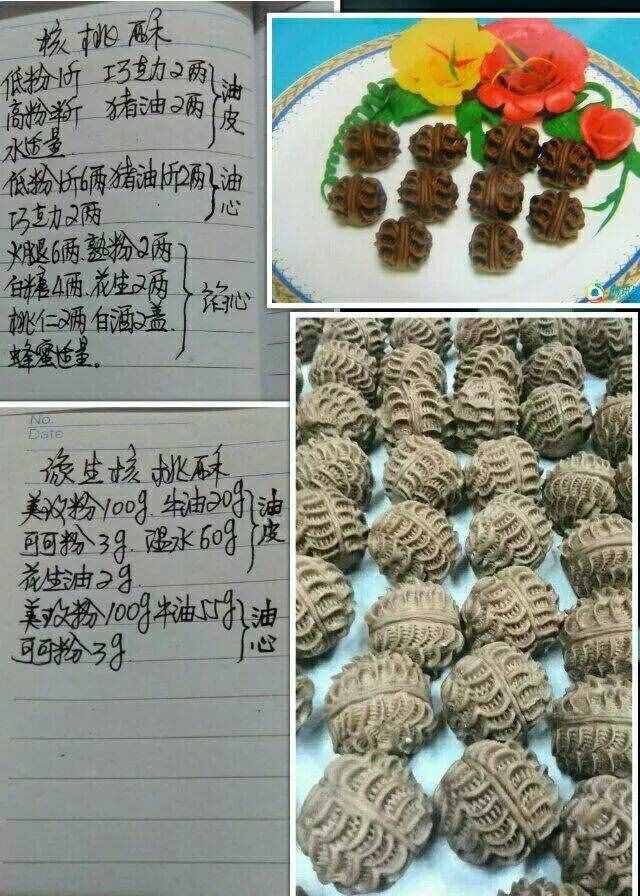 核桃酥
低粉1斤 巧克力2两
高粉半斤 猪油2两
油皮
水适量
低粉1斤6两 猪油1斤2两
油心
巧克力2两
火腿6两 熟粉2两
白糖4两 花生2两
馅心
桃仁2两 白酒2盖
蜂蜜适量。
No.
Date
核桃酥
粉100g 牛油20g
油皮
可可粉3g 温水60g
花生油2g
粉100g 牛油55g
油心
可可粉3g